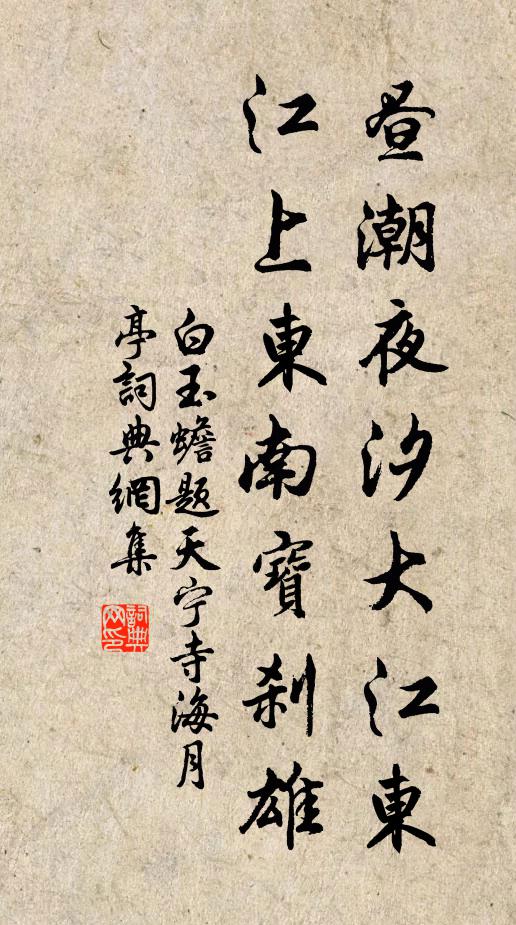 昼潮夜汐大江東
江上東南寶刹雄
白玉蟾题天宁寺海月
亭詞典網集
詞典网印